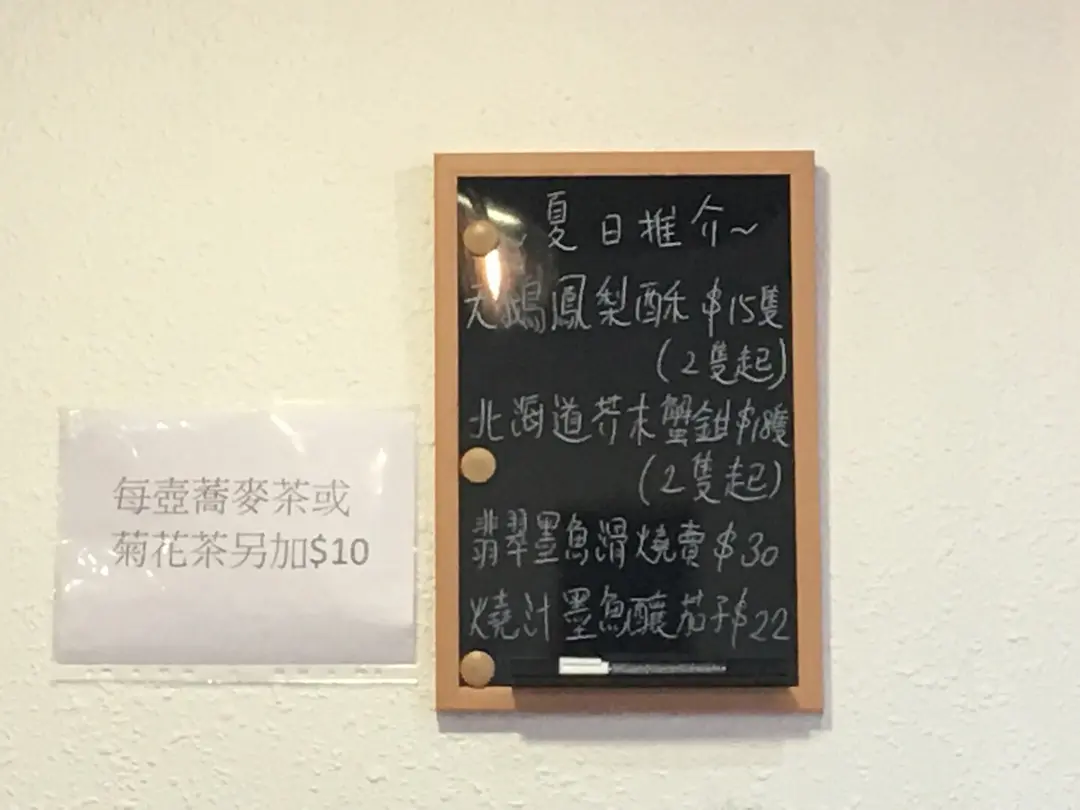 每壺蕎麥茶或
菊花茶另加$10
~夏日推介~
天鵝鳳梨酥$15隻
(2隻起)
北海道芥末蟹鉗$18隻
(2隻起)
翡翠墨魚滑燒賣$30
燒汁墨魚釀茄子$22